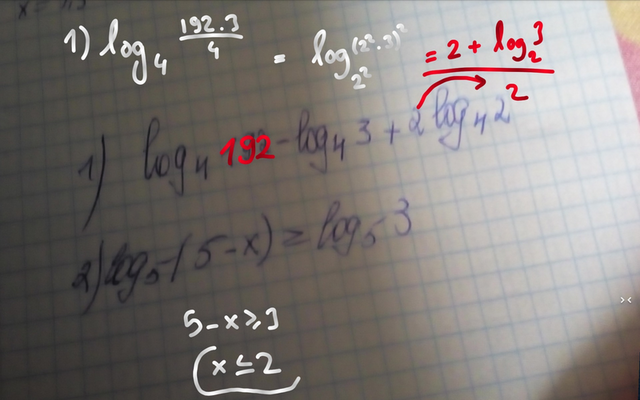 1) log₄ 192·3/4 = log_2² (2²·3)² = 2 + log₂3 / 2
1) log₄ 192 - log₄ 3 + 2 log₄ 2
2) log₅ (5-x) ≥ log₅ 3
5-x≥3
x≤2